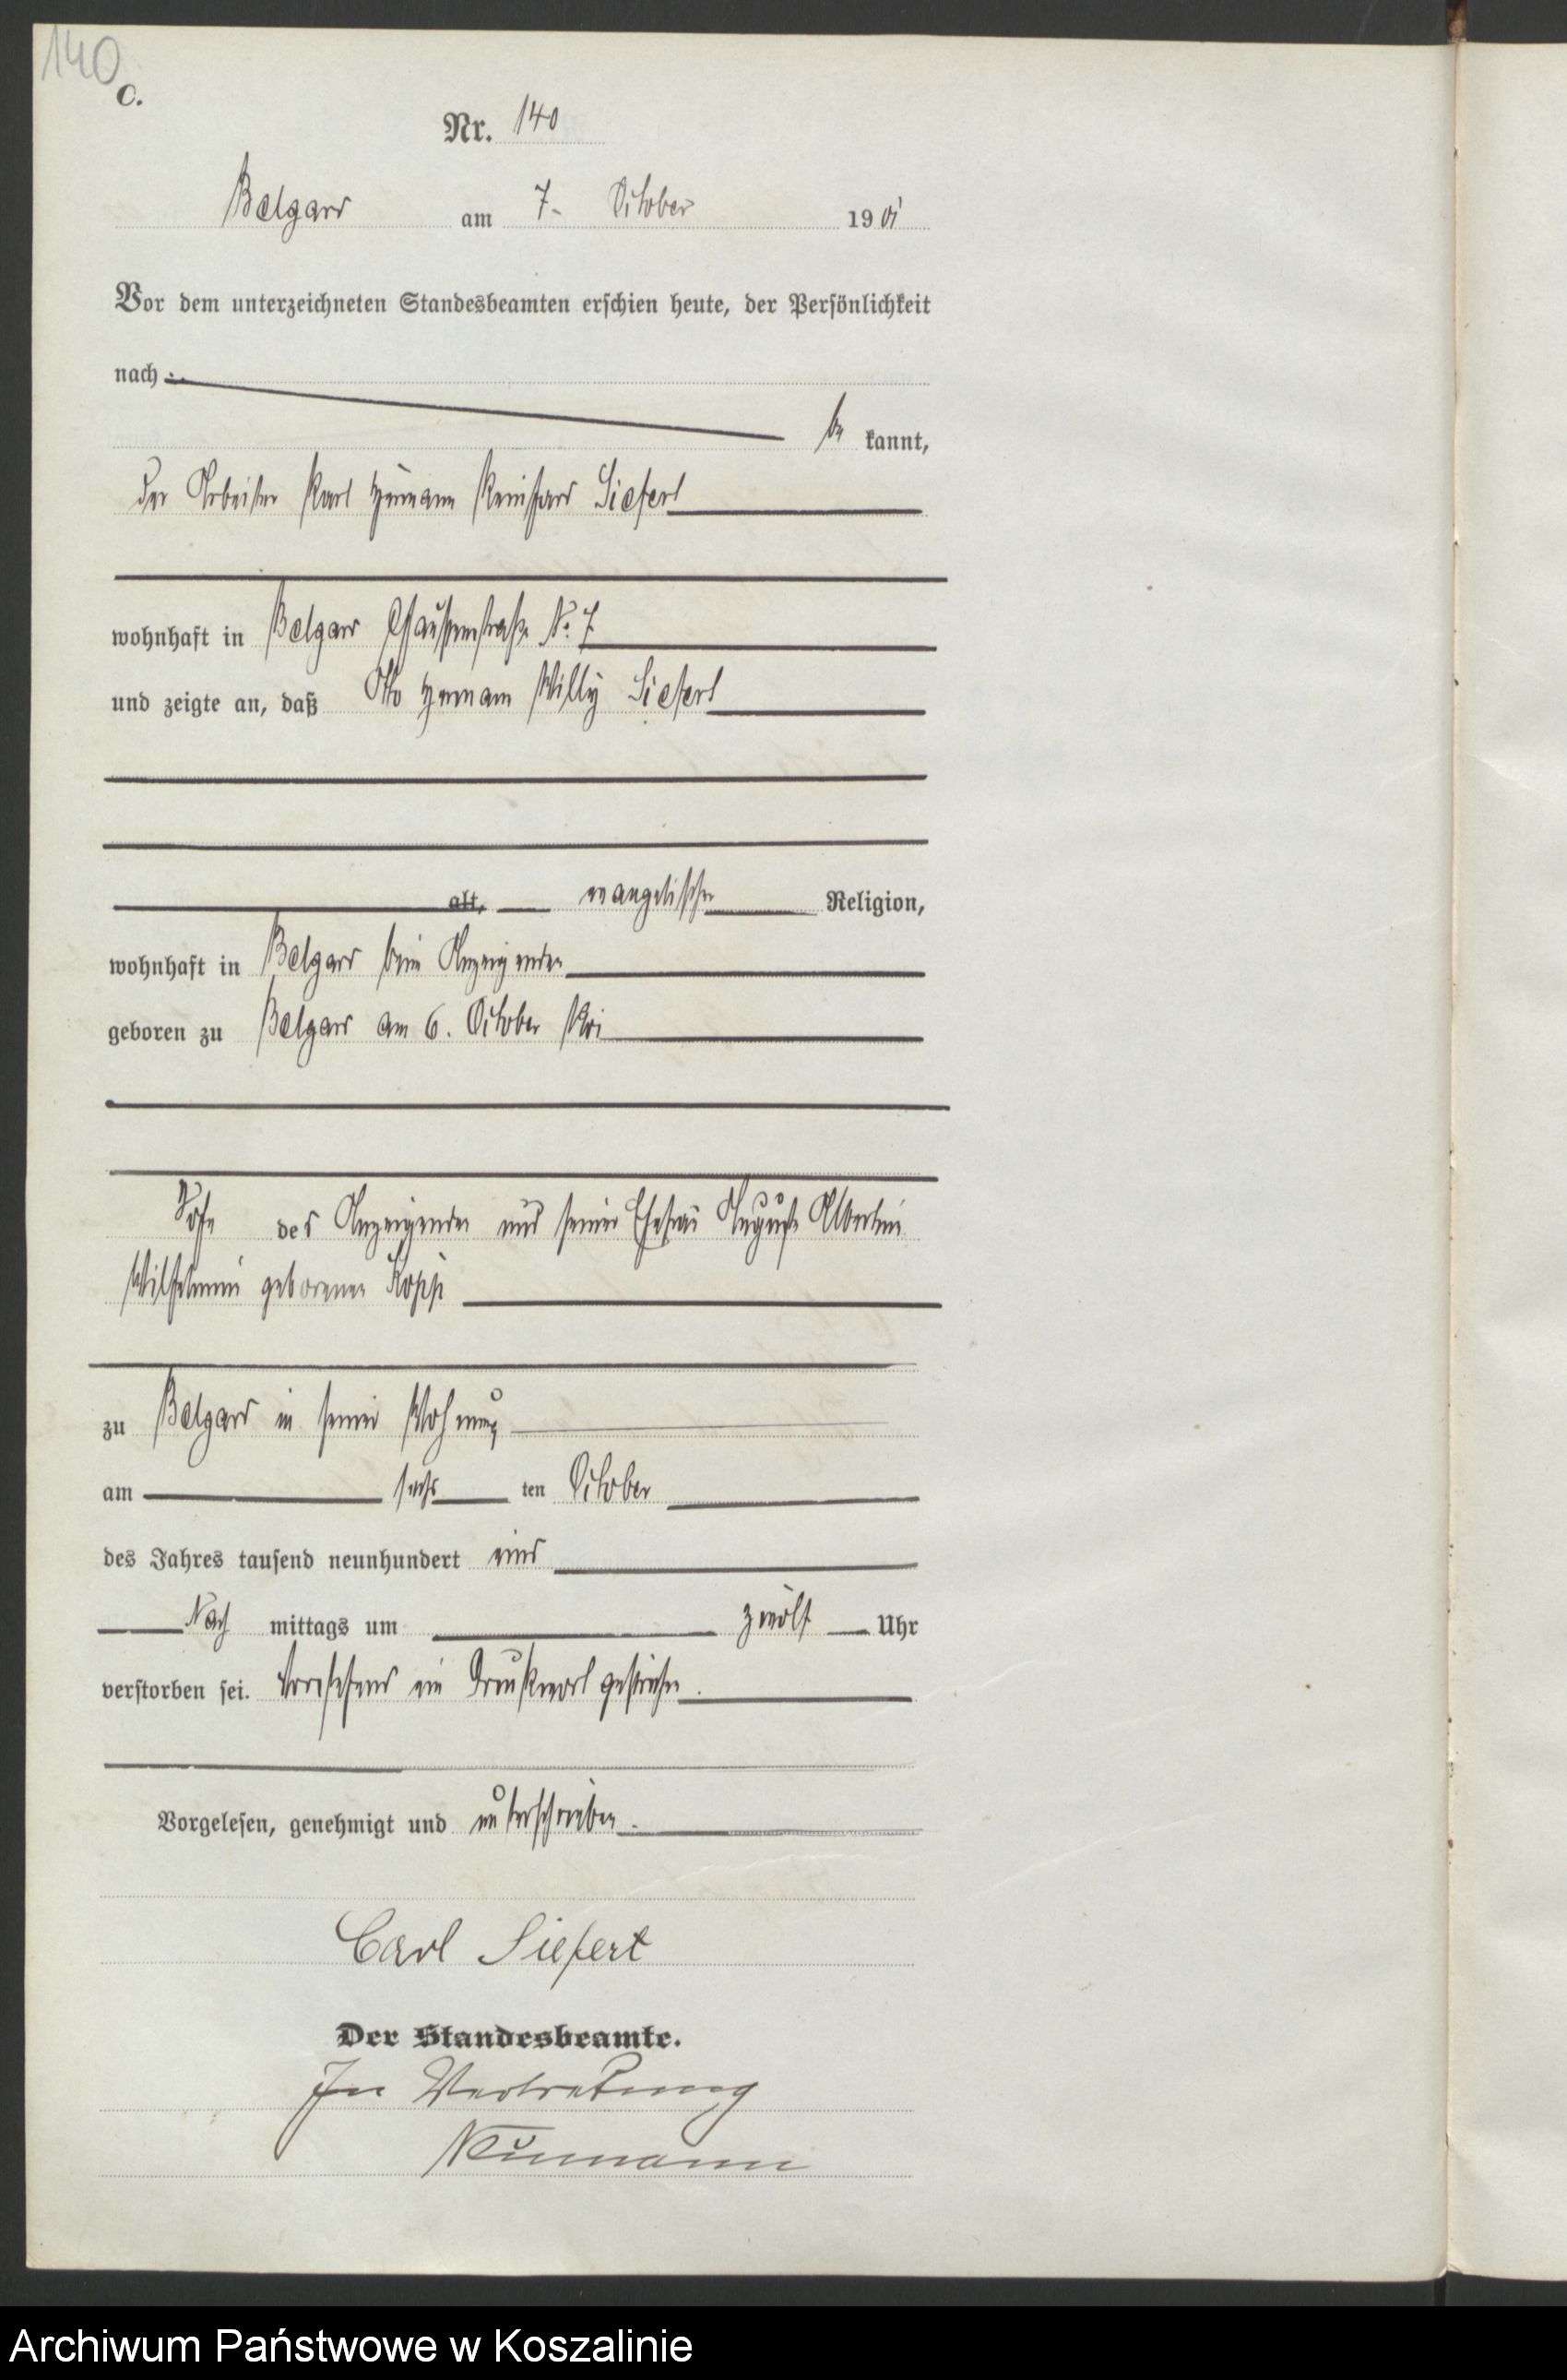 140
C.
Nr. 140
Belgard am 7. October 1901
Vor dem unterzeichneten Standesbeamten erschien heute, der Persönlichkeit
nach
be kannt,
der Arbeiter Karl Hermann Reinhard Siefert
wohnhaft in Belgard Chausseestraße No. 7
und zeigte an, daß Otto Hermann Willy Siefert
alt, evangelischer Religion,
wohnhaft in Belgard beim Anzeigenden
geboren zu Belgard am 6. October
Sohn des Anzeigenden und seiner Ehefrau Auguste Albertine
Wilhelmine geborenen Kopp
zu Belgard in seiner Wohnung
am sechs ten October
des Jahres tausend neunhundert eins
Nach mittags um zwölf Uhr
verstorben sei. Vorstehend ein Druckwort gestrichen.
Vorgelesen, genehmigt und unterschrieben.
Carl Siefert
Der Standesbeamte.
In Vertretung
Neumann
Archiwum Państwowe w Koszalinie